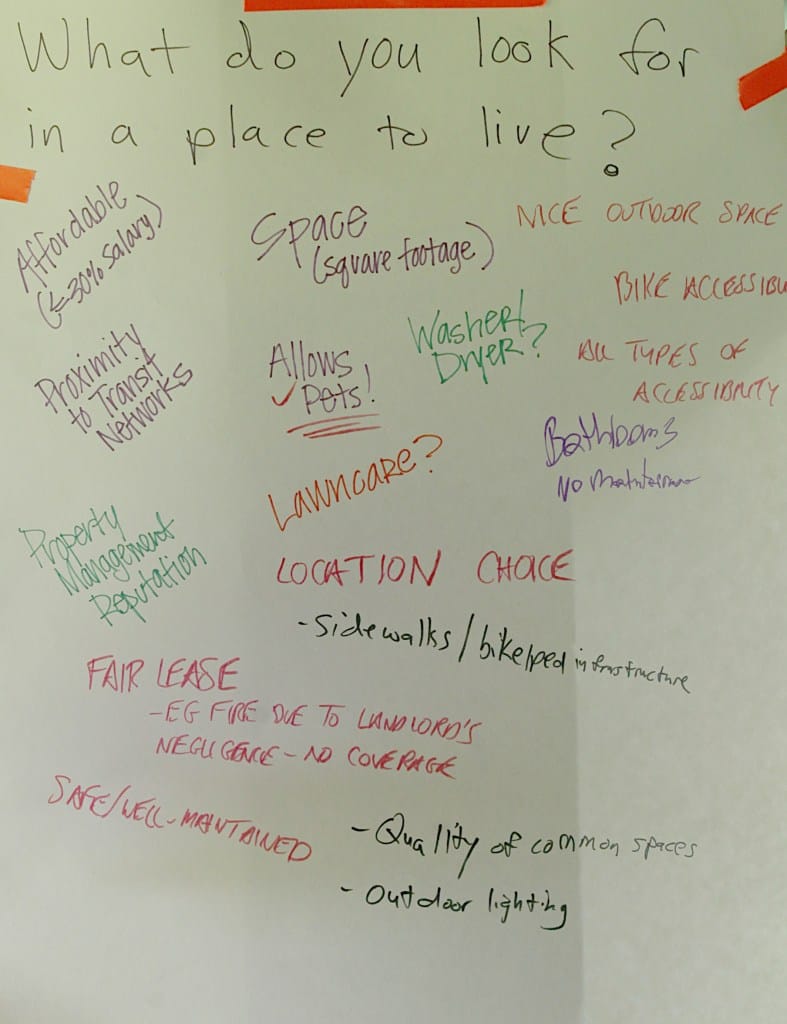 What do you look for
in a place to live?
Affordable
(≤30% salary)
Space
(square footage)
NICE OUTDOOR SPACE
BIKE ACCESSIBL
Proximity
to Transit
Networks
Allows
✓ Pets!
Washer/
Dryer?
ALL TYPES OF
ACCESSIBILITY
Bathrooms
No
Lawncare?
Property
Management
Reputation
LOCATION CHOICE
- Sidewalks/bike/ped infrastructure
FAIR LEASE
- EG FIRE DUE TO LANDLORD'S
NEGLIGENCE - NO COVERAGE
SAFE/WELL-MAINTAINED
- Quality of common spaces
- Outdoor lighting